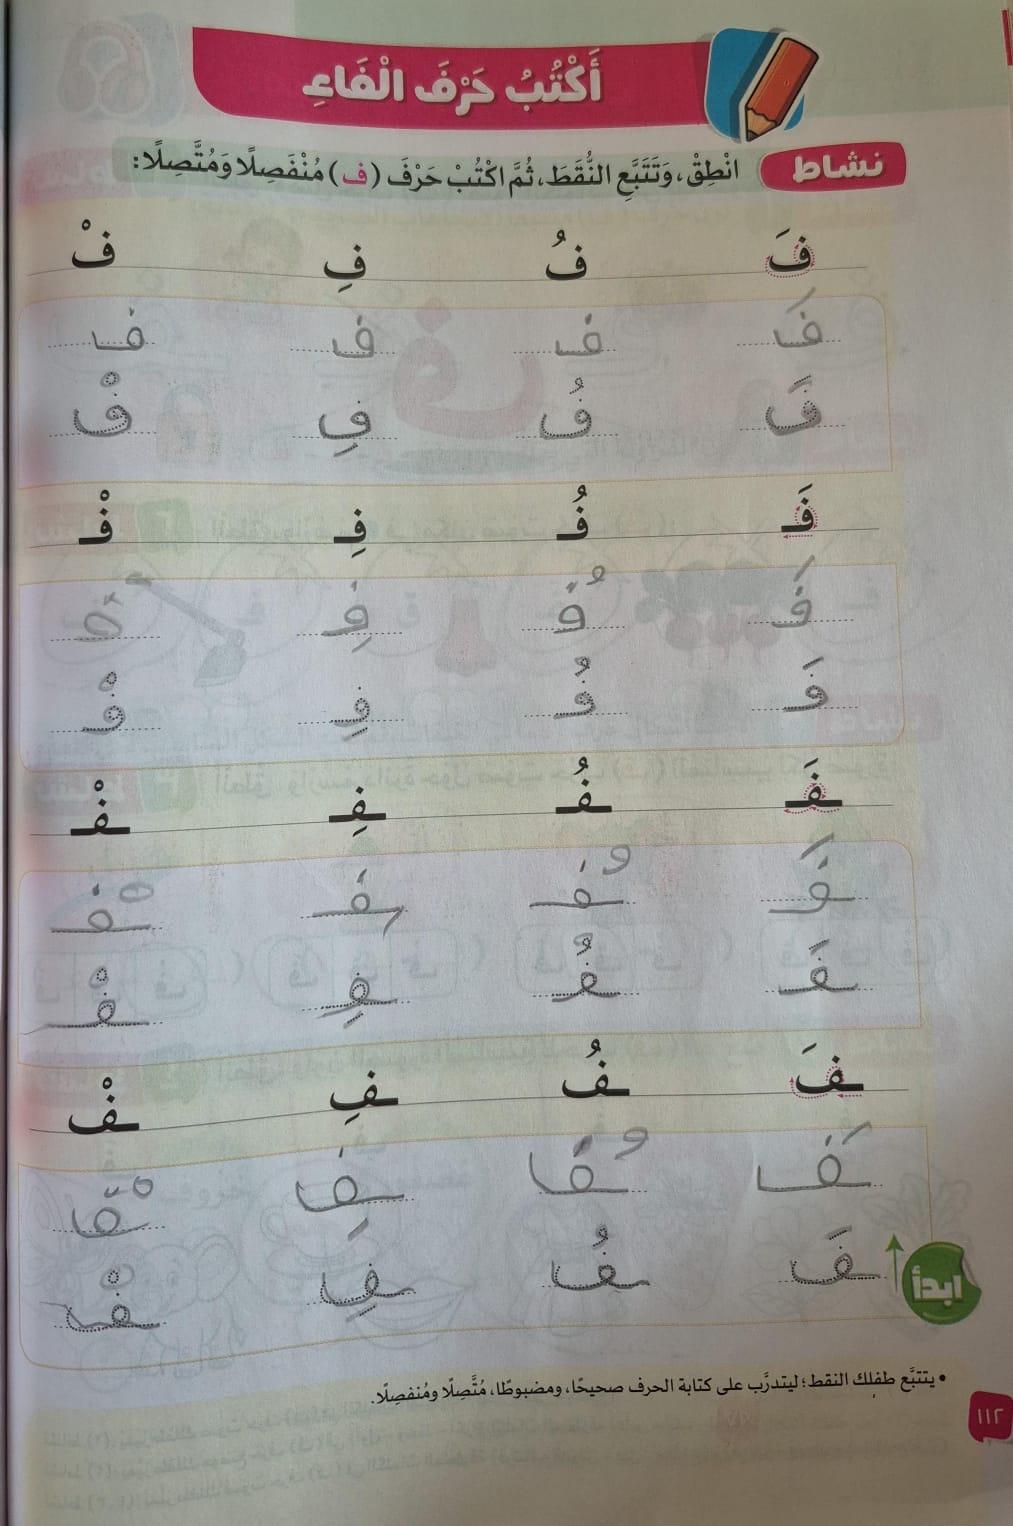 أَكْتُبُ حَرْفَ الْفَاءِ
نشاط انْطِقْ، وَتَتَبَّعِ النُّقَطَ، ثُمَّ اكْتُبْ حَرْفَ (ف) مُنْفَصِلًا وَمُتَّصِلًا:
فَ فُ فِ فْ
فَ ف ف ف
فَ فُ فِ فْ
فَـ فُـ فِـ فْـ
فَـ فُـ فِـ
فَـ فُـ فِـ فْـ
ـفَـ ـفُـ ـفِـ ـفْـ
ـفَـ ـفُـ ـفـ ـفْـ
ـفَـ ـفُـ ـفِـ ـفْـ
ـفَ ـفُ ـفِ ـفْ
ـفَ ـفُ ـفِ ـفْ
ـفَ ـفُ ـفِ ـفْ
ابدأ
• يتتبَّع طفلك النقط؛ ليتدرَّب على كتابة الحرف صحيحًا، ومضبوطًا، مُتَّصِلًا ومُنفصِلًا.
١١٢